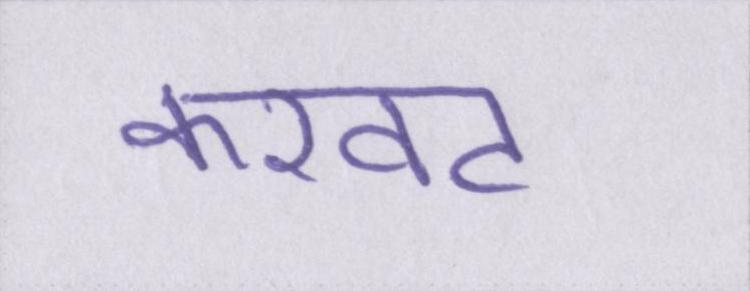 करवट